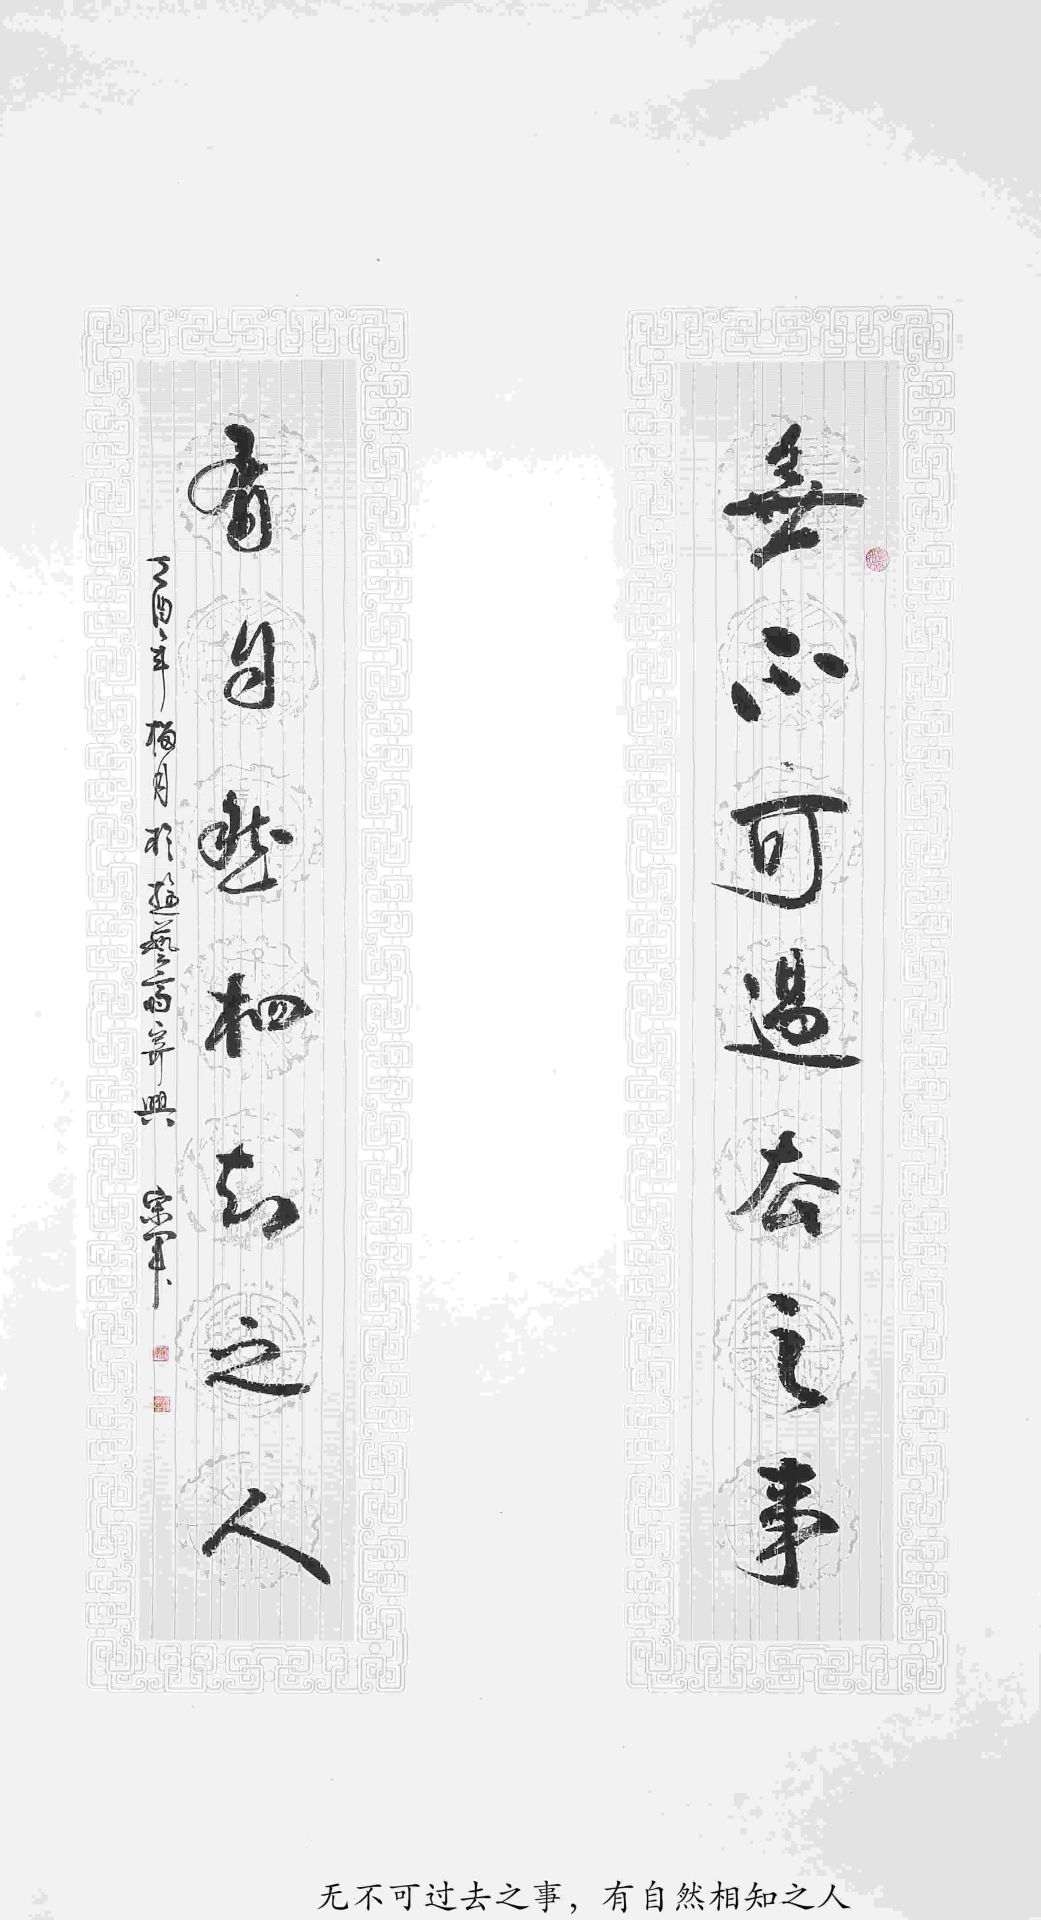 無不可過去之事
有自然相知之人
丁酉年梅月於遊藝齋弄興 宗军
无不可过去之事，有自然相知之人